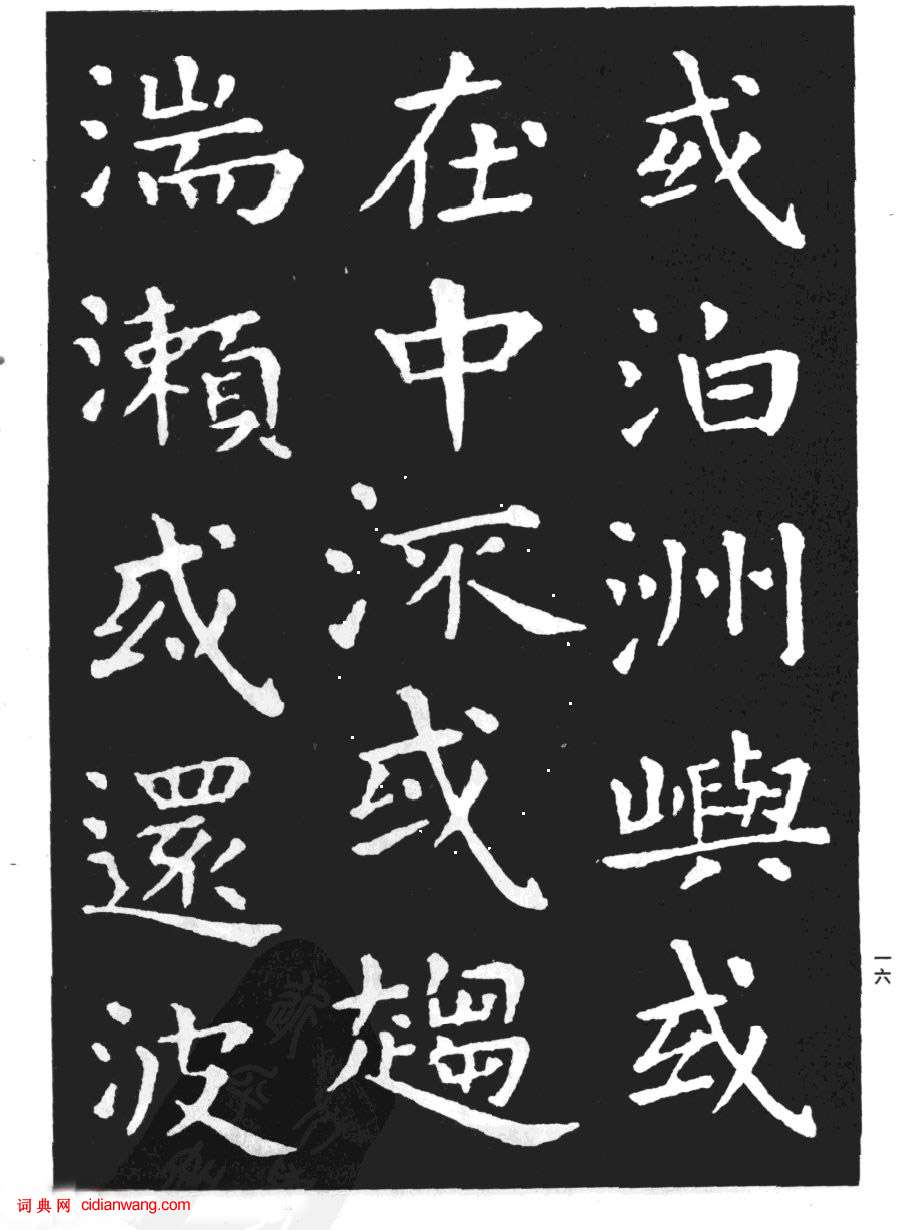 或泊洲嶼或
在中沠或趨
湍瀬或還波
一六
词典网 cidianwang.com